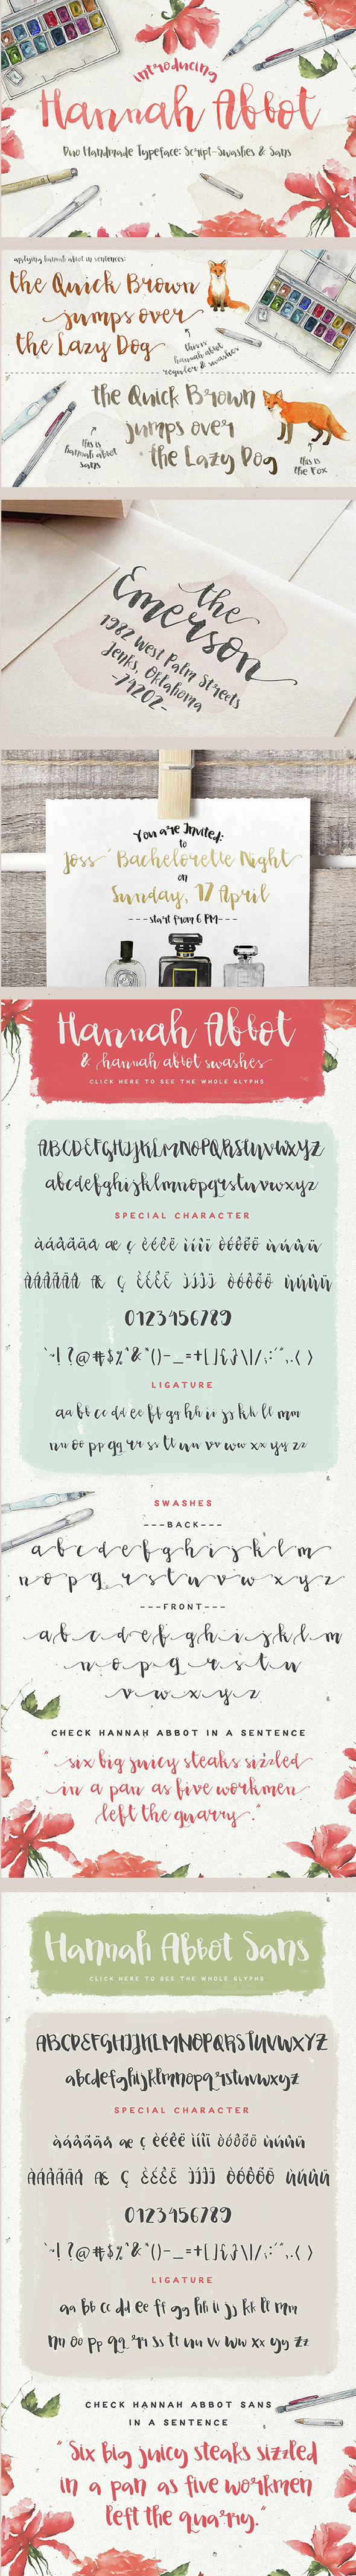 introducing
Hannah Abbot
Duo Handmade Typeface: Script-Swashes & Sans
applying hannah abbot in sentences:
the Quick Brown
jumps over
the Lazy Dog
this is
hannah abbot
regular & swashes
the Quick Brown
jumps over
the Lazy Dog
this is
hannah abbot
sans
this is
the Fox
the
Emerson
1982 West Palm Streets
Jenks, Oklahoma
-74202-
You are Invited:
to
Joss' Bachelorette Night
on
Sunday, 17 April
---start from 6 PM---
Hannah Abbot
& hannah abbot swashes
CLICK HERE TO SEE THE WHOLE GLYPHS
ABCDEFGHIJKLMNOPQRSTUVWXYZ
abcdefghijklmnopqrstuvwxyz
SPECIAL CHARACTER
àáâãäå æ ç èéêë ìíîï òóôõö ùúûü
ÀÁÂÃÄÅ Æ Ç ÈÉÊË ÌÍÎÏ ÒÓÔÕÖ ÙÚÛÜ
0123456789
`~! ?@#$%^&*()-_=+[]{}\|/,:;'",.<>
LIGATURE
aa bb cc dd ee ff gg hh ii jj kk ll mm
nn oo pp qq rr ss tt uu vv ww xx yy zz
SWASHES
---BACK---
a b c d e f g h i j k l m
n o p q r s t u v w x y z
---FRONT---
a b c d e f g h i j k l m
n o p q r s t u
v w x y z
CHECK HANNAH ABBOT IN A SENTENCE
"six big juicy steaks sizzled
in a pan as five workmen
left the quarry."
Hannah Abbot Sans
CLICK HERE TO SEE THE WHOLE GLYPHS
ABCDEFGHIJKLMNOPQRSTUVWXYZ
abcdefghijklmnopqrstuvwxyz
SPECIAL CHARACTER
àáâãäå æ ç èéêë ìíîï òóôõö ùúûü
ÀÁÂÃÄÅ Æ Ç ÈÉÊË ÌÍÎÏ ÒÓÔÕÖ ÙÚÛÜ
0123456789
`~! ?@#$%^&*()-_=+[]{}\|/,:;'",.<>
LIGATURE
aa bb cc dd ee ff gg hh ii jj kk ll mm
nn oo pp qq rr ss tt uu vv ww xx yy zz
CHECK HANNAH ABBOT SANS
IN A SENTENCE
"Six big juicy steaks sizzled
in a pan as five workmen
left the quarry."